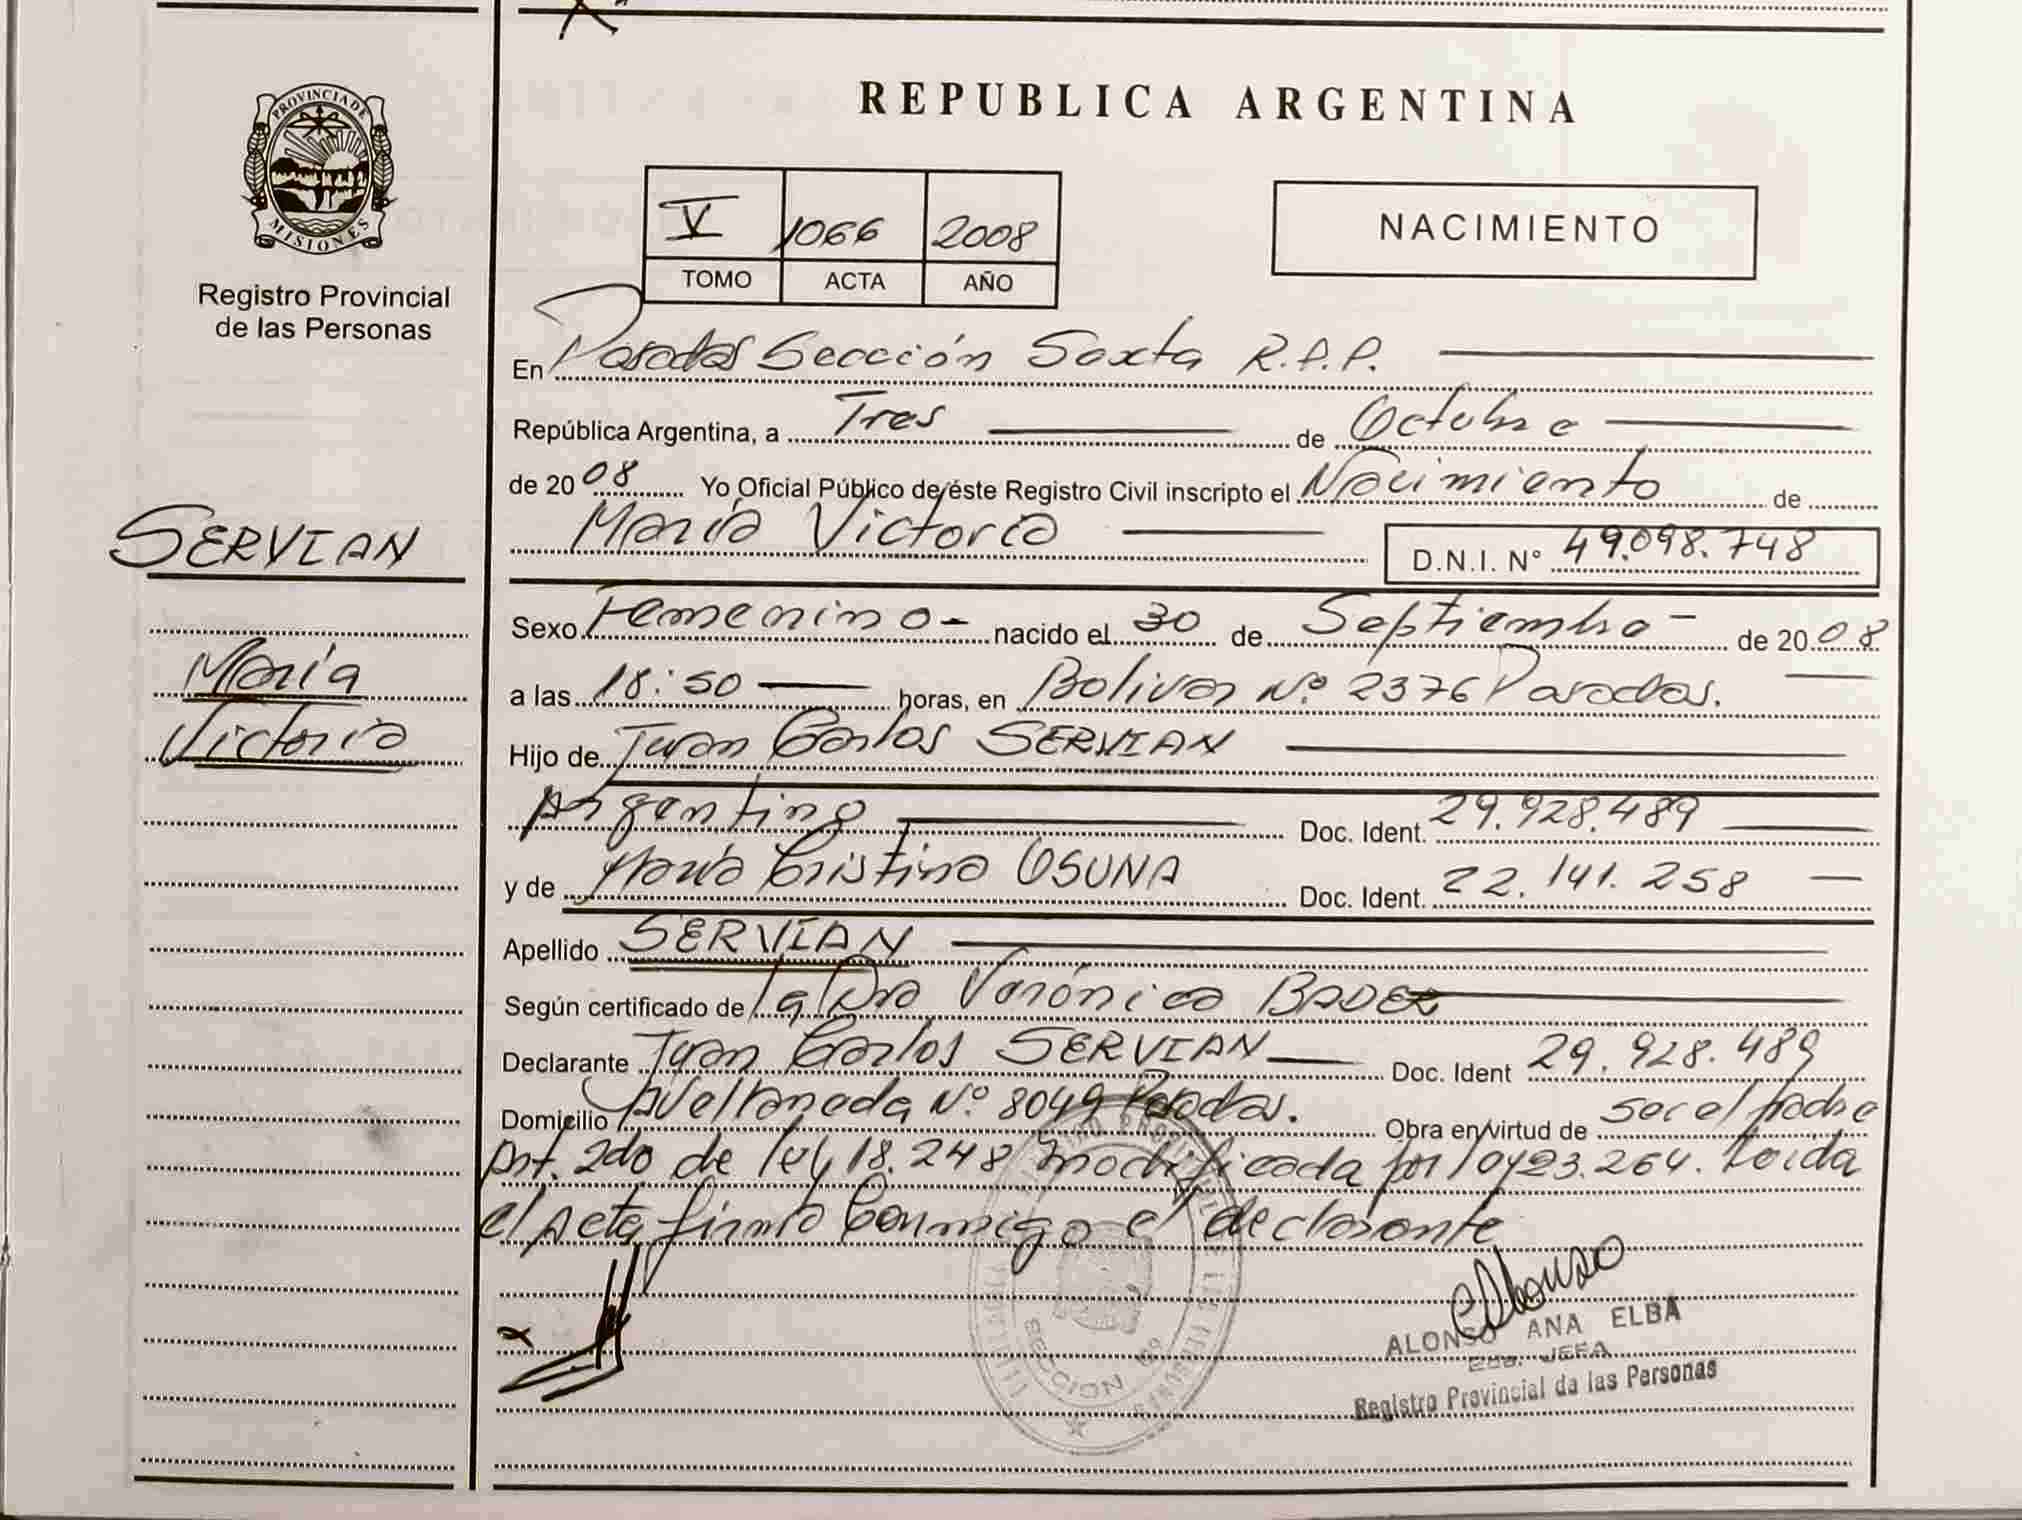 PROVINCIA DE
MISIONES
Registro Provincial
de las Personas
SERVIAN
María
Victoria
REPUBLICA ARGENTINA
V 1066 2008
TOMO ACTA AÑO
NACIMIENTO
En Posadas Sección Sexta R.P.P.
República Argentina, a Tres de Octubre
de 2008 Yo Oficial Público de éste Registro Civil inscripto el Nacimiento de
María Victoria D.N.I. Nº 49.098.748
Sexo Femenino - nacido el 30 de Septiembre - de 2008
a las 18:50 horas, en Bolivar Nº 2376 Posadas.
Hijo de Juan Carlos SERVIAN
Argentino Doc. Ident. 29.928.489
y de María Cristina OSUNA Doc. Ident. 22.141.258
Apellido SERVIAN
Según certificado de la Dra Verónica BADER
Declarante Juan Carlos SERVIAN Doc. Ident 29.928.489
Domicilio Avellaneda Nº 8049 Posadas. Obra en virtud de ser el padre
Art. 2do de ley 18.248 modificada por ley 23.264. Leida
el acta firma conmigo el declarante
SECCION
ALONSO ANA ELBA
JEFA
Registro Provincial de las Personas